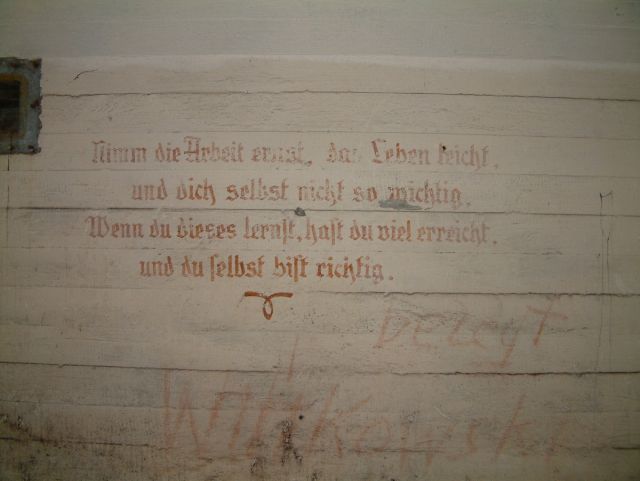 Nimm die Arbeit ernst, das Leben leicht,
und dich selbst nicht so wichtig.
Wenn du dieses lernst, hast du viel erreicht,
und du selbst bist richtig.
Belegt
Wittkowski